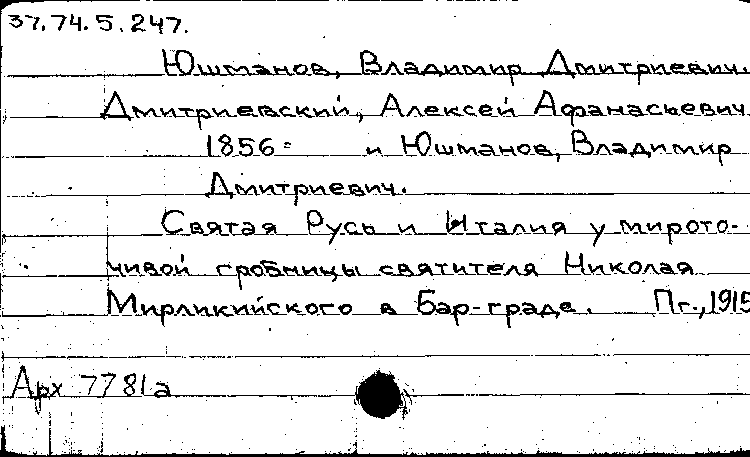 37.74.5.247.
Юшманов, Владимир Дмитриевич.
Дмитриевский, Алексей Афанасьевич
1856= и Юшманов, Владимир
Дмитриевич.
Святая Русь и Италия у мирото-
чивой гробницы святителя Николая
Мирликийского в Бар-граде. Пг., 1915
Арх 7781а